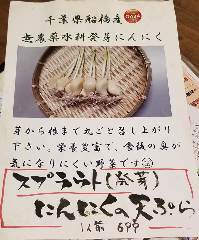 千葉県船橋産
無農薬水耕発芽にんにく
芽から根まで丸ごと召し上がり
下さい。栄養豊富で、普段の臭が
気になりにくい野菜です
スプラウト(発芽)
にんにくの天ぷら
1人前 699